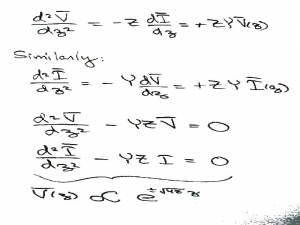 d²V̄/dz² = -Z dĪ/dz = +ZYV̄(z)
Similarly:
d²Ī/dz² = -Y dV̄/dz = +ZYĪ(z)
d²V̄/dz² - YZV̄ = 0
d²Ī/dz² - YZI = 0
V̄(z) ∝ e^{±√YZ z}